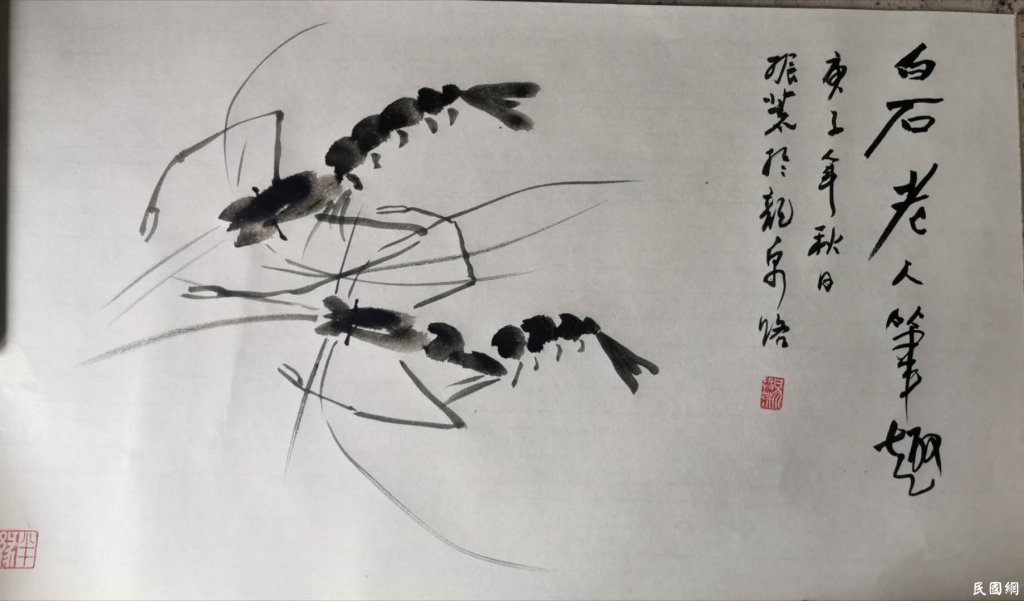 白石老人筆趣
庚子年秋日
振裳於龍泉路
民國網